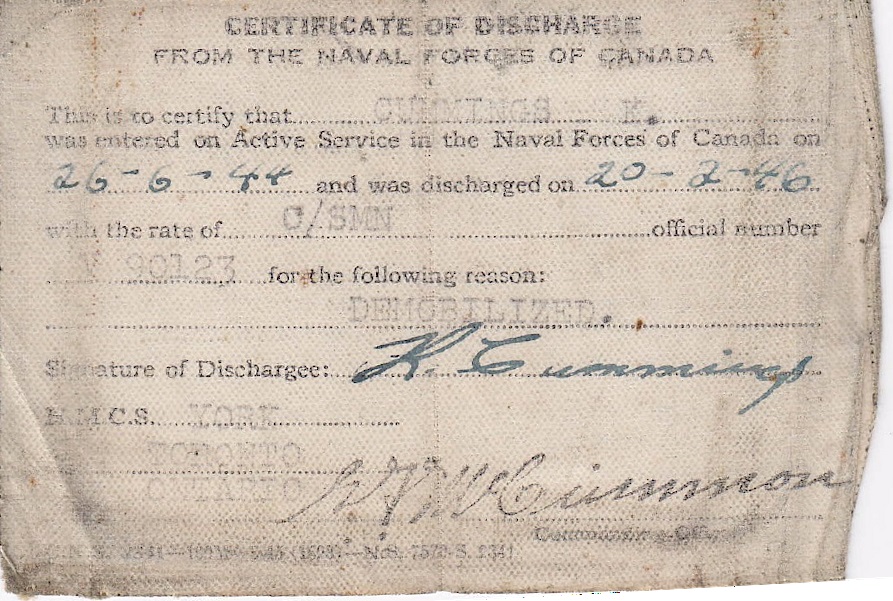 CERTIFICATE OF DISCHARGE
FROM THE NAVAL FORCES OF CANADA
This is to certify that CUMMINGS K.
was entered on Active Service in the Naval Forces of Canada on
26-6-44 and was discharged on 20-2-46
with the rate of C/SMN official number
V 90123 for the following reason:
DEMOBILIZED.
Signature of Dischargee: K. Cummings
H.M.C.S. YORK
TORONTO
ONTARIO
Commanding Officer